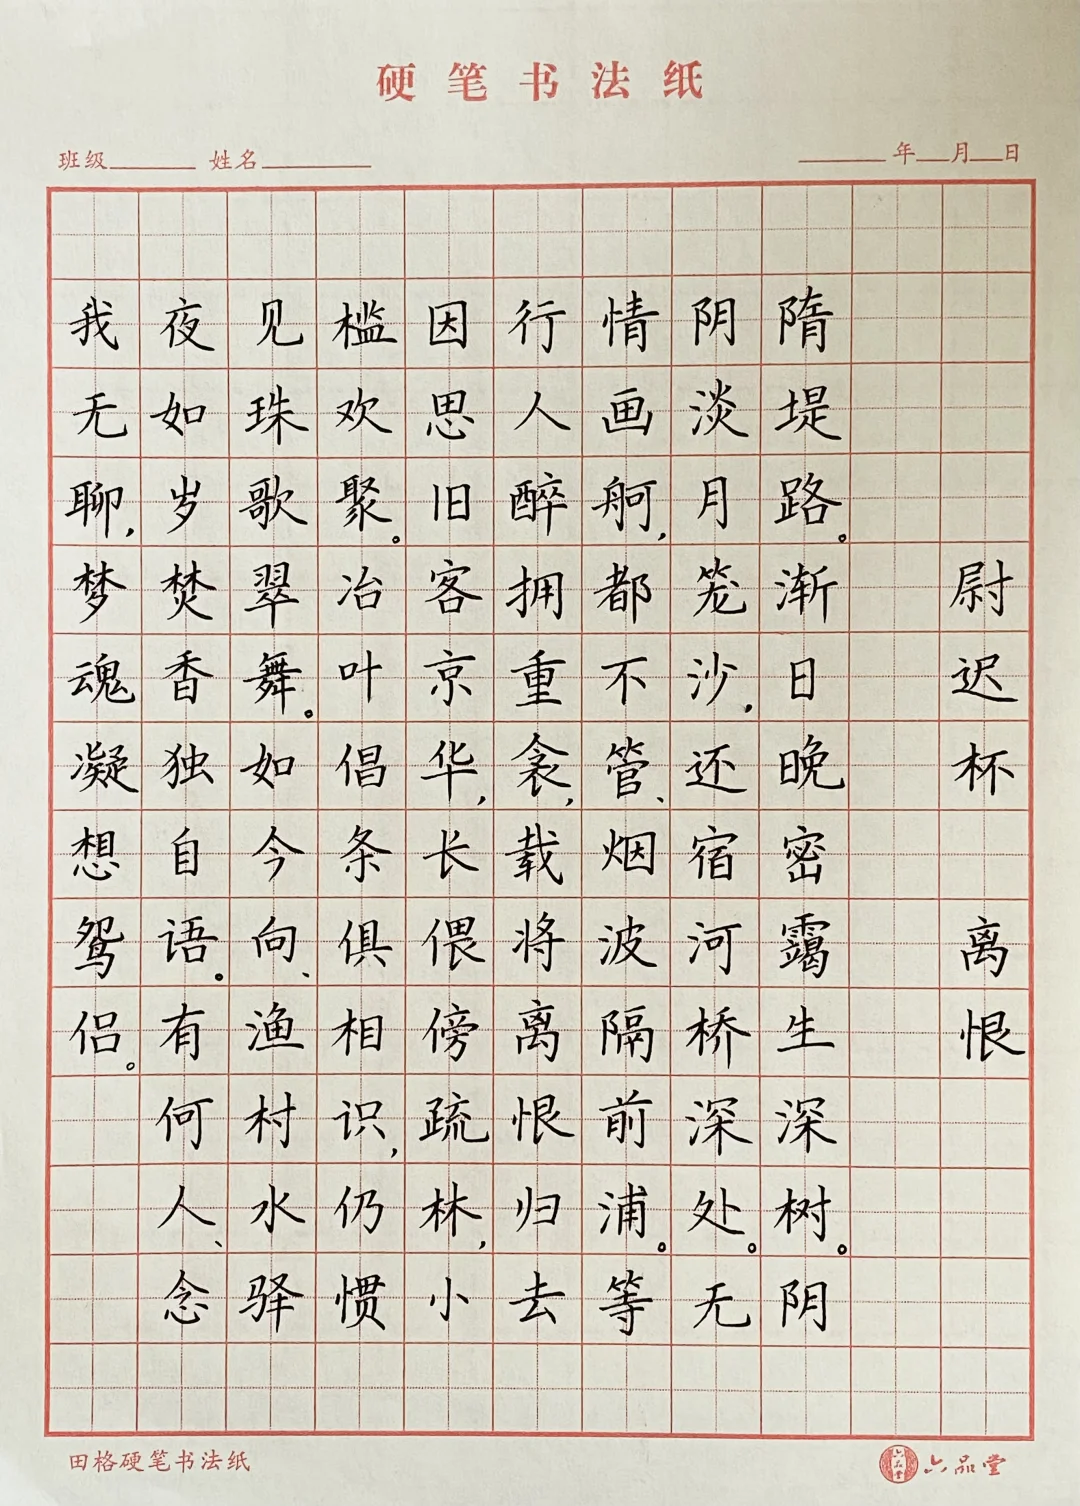 硬笔书法纸
班级 姓名 年 月 日
尉迟杯 离恨
隋堤路。渐日晚密霭生深树。阴
阴淡月笼沙,还宿河桥深处。无
情画舸,都不管、烟波隔前浦。等
行人醉拥重衾,载将离恨归去。
因思旧客京华,长偎傍疏林,小
槛欢聚。冶叶倡条俱相识,仍惯
见珠歌翠舞。如今向、渔村水驿
夜如岁焚香独自语。有何人、念
我无聊,梦魂凝想鸳侣。
田格硬笔书法纸
六品堂